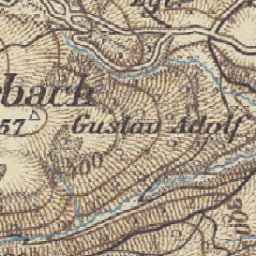 bach
57
Gustav Adolf
400